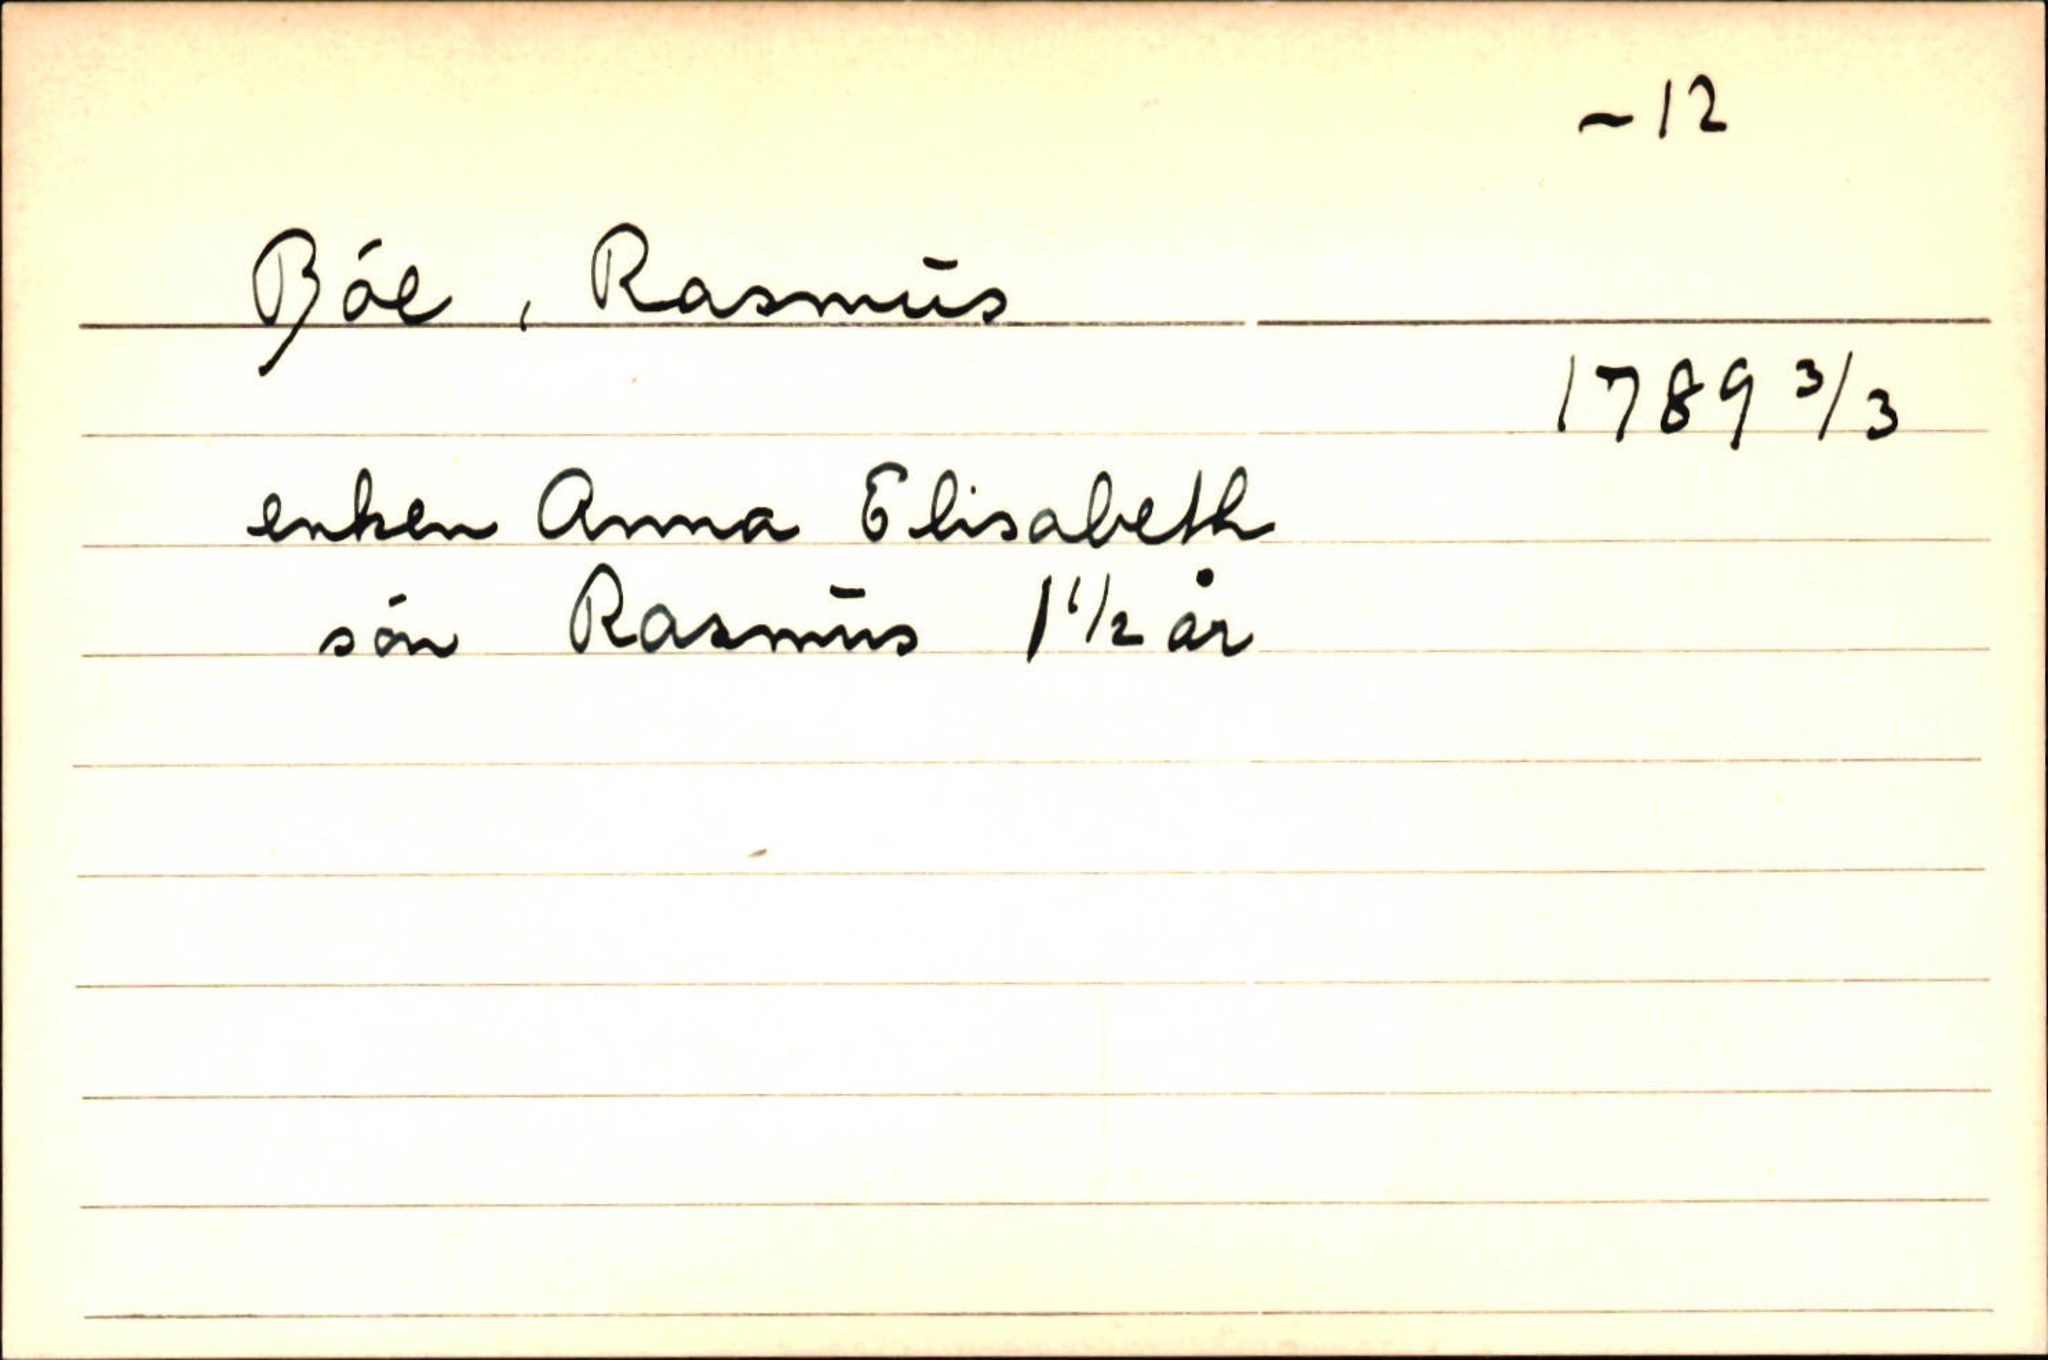 ~12
Bóe, Rasmus
1789 3/3
enken Anna Elisabeth
són Rasmus 1 1/2 år